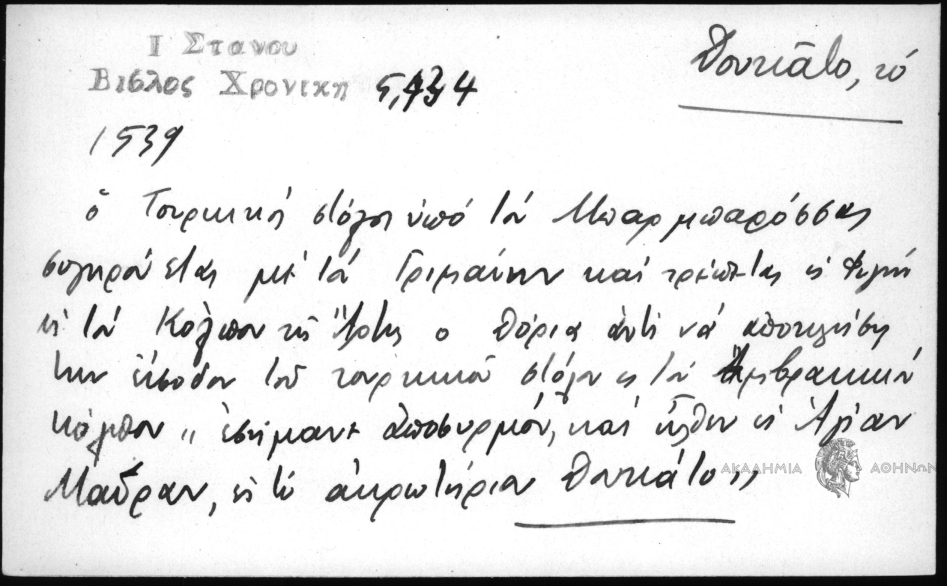 Ι Στανου
Βιβλος Χρονικη 5, 434
Δουκᾶτο, τό
1539
ὁ Τουρκικός στόλος ὑπό τόν Μπαρμπαρόσσας
συγκρούεται μέ τόν Γριμάνην καί τρέπεται εἰς φυγήν
εἰς τόν Κόλπον τῆς Ἄρτης ὁ Δόρια ἀντί νά ἀποκλείσῃ
την εἴσοδον τοῦ τουρκικοῦ στόλου εἰς τόν Ἀμβρακικόν
κόλπον ,, ἐσήμανε ἀποσυρμόν, καί ἦλθεν εἰς Ἁγίαν
Μαῦραν, εἰς τό ἀκρωτήριον Δουκᾶτο ,,
ΑΚΑΔΗΜΙΑ ΑΘΗΝΩΝ